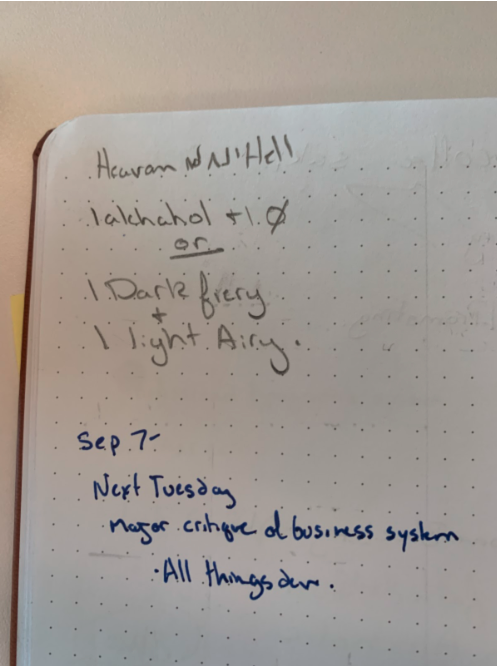 Heavan Hell
1 alchahol + 1 Ø
or
1 Dark fiery
+
1 light Airy.
Sep 7-
Next Tuesday
Major critique of business system
·All things